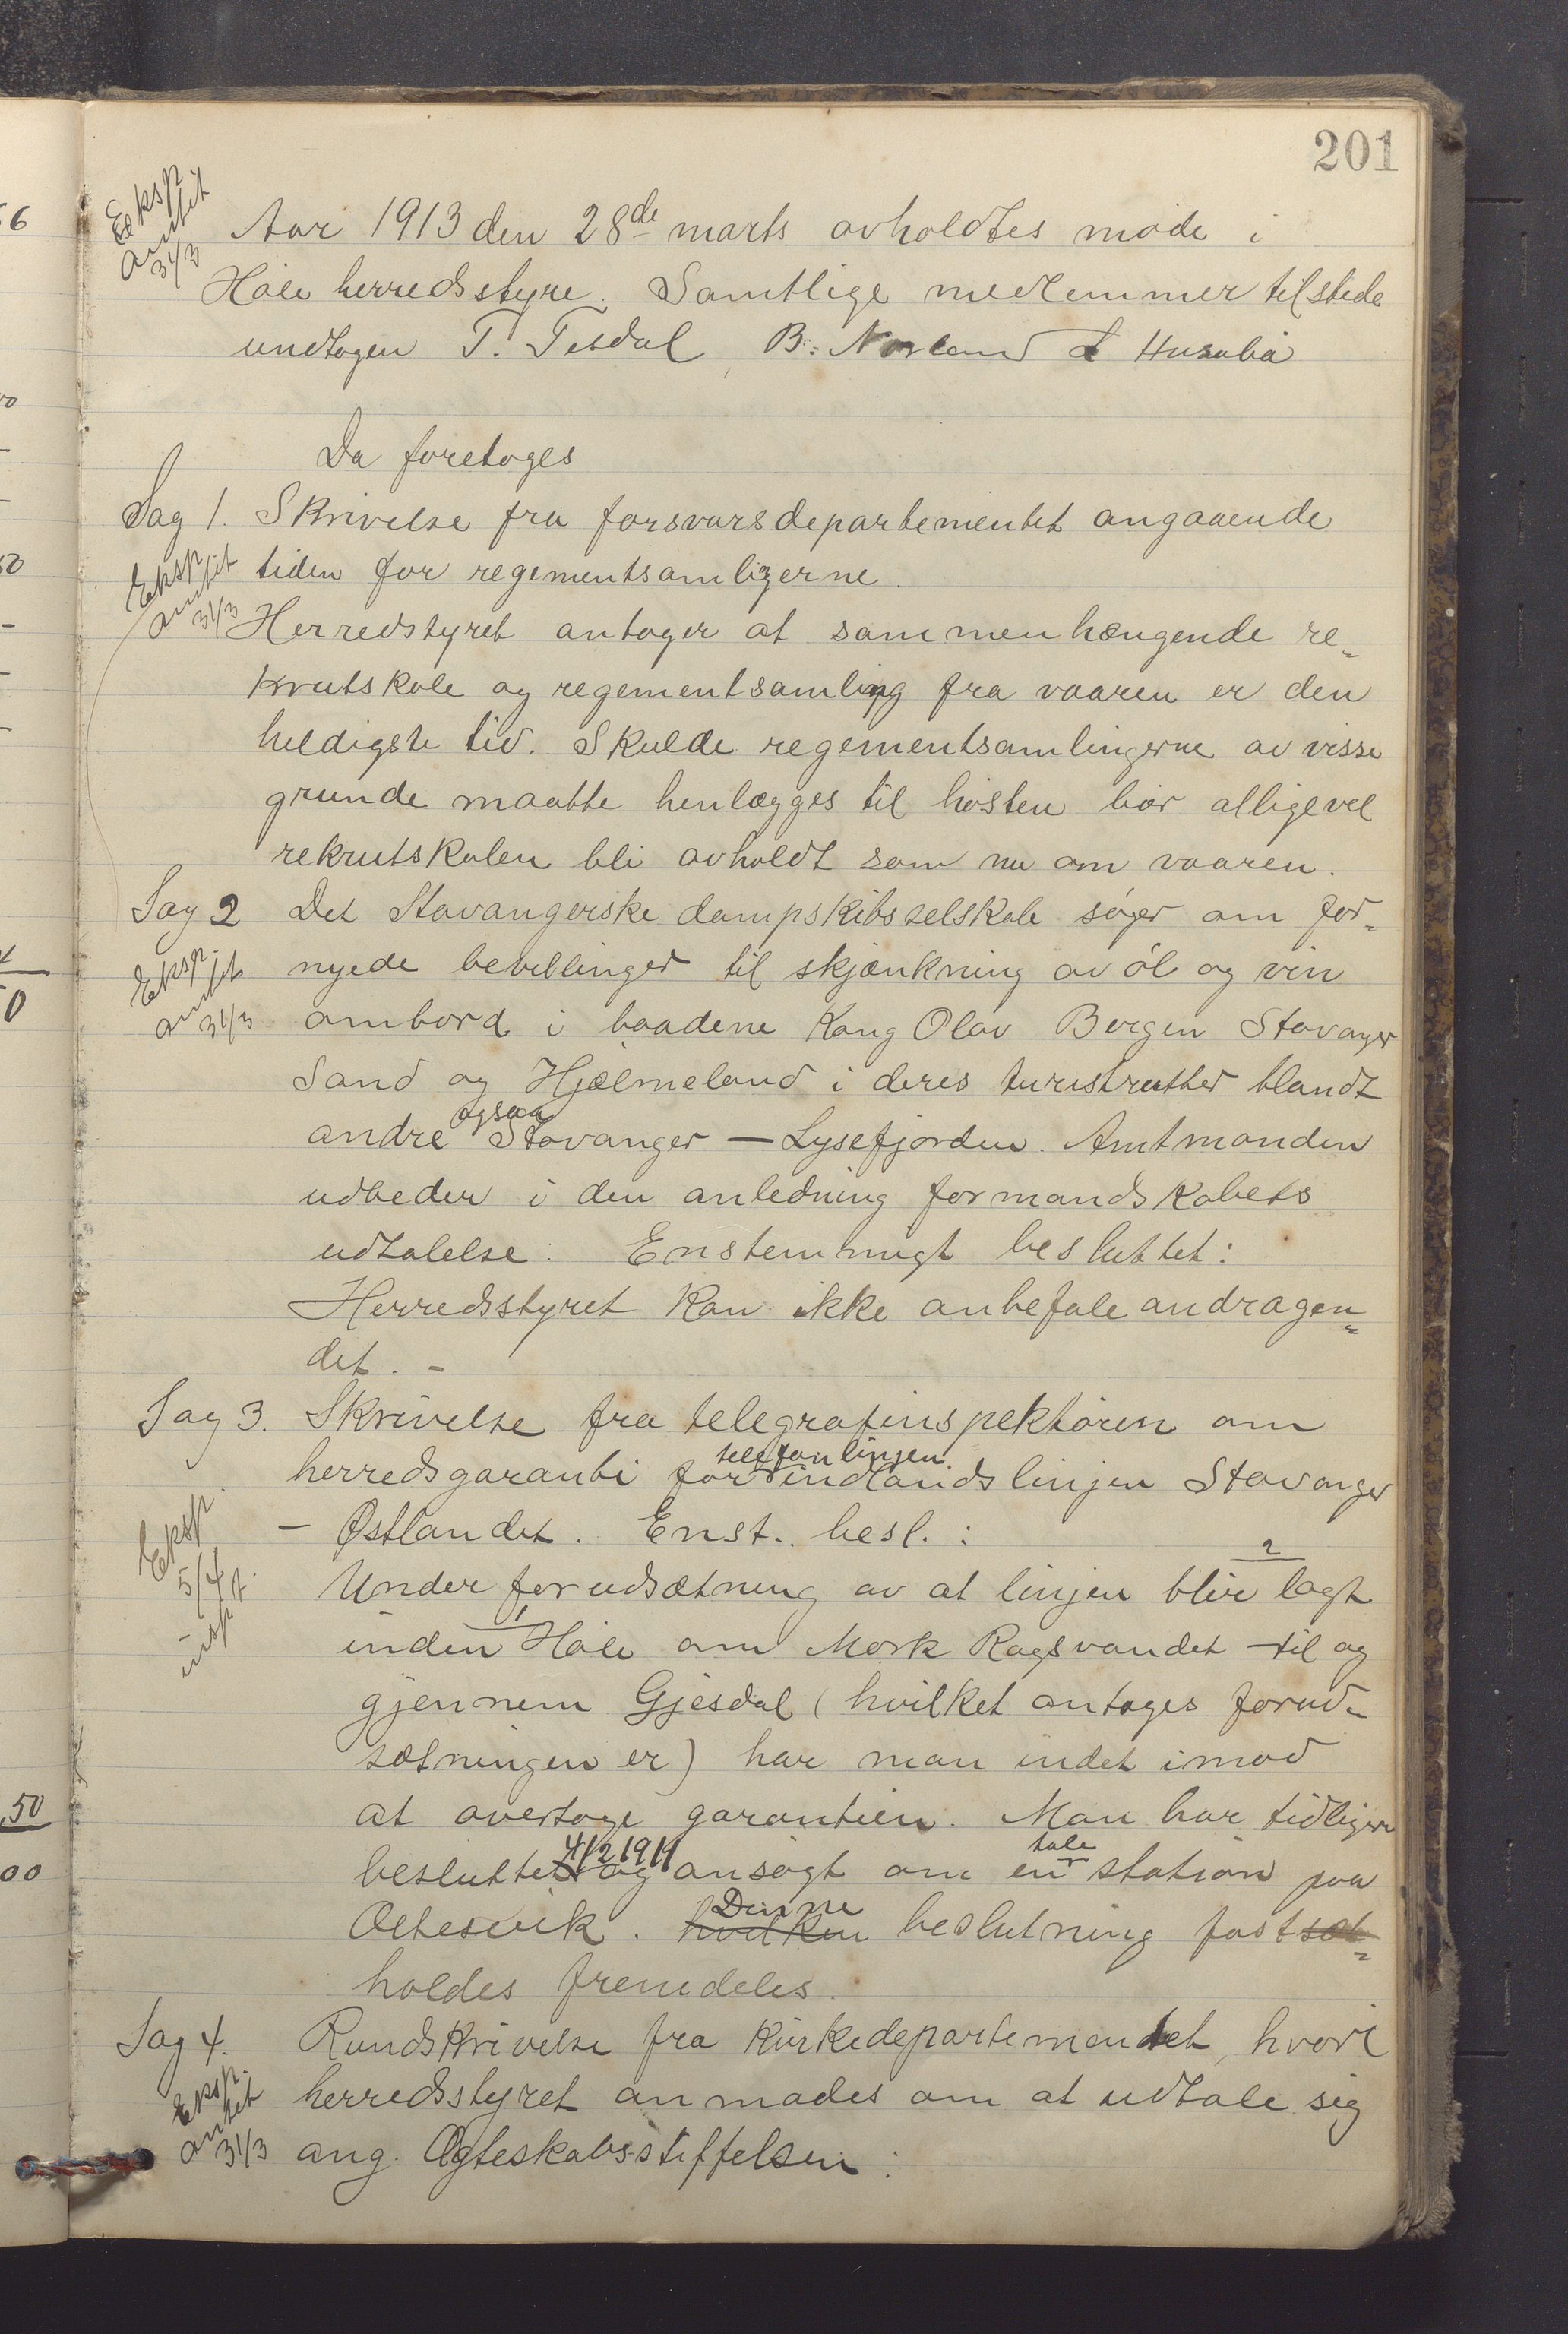 201
Eksp
amtet
31/3
Aar 1913 den 28de marts avholdtes møde i
Høle herredsstyre. Samtlige medlemmer tilstede
undtagen T. Tesdal, B. Norland & Husabø
Da foretoges
Sag 1. Skrivelse fra forsvarsdepartementet angaaende
Eksp amtet 31/3
tiden for regementsamligerne.
Herredstyret antager at sammenhængende re-
krutskole og regementsamling fra vaaren er den
heldigste tid. Skulde regementsamlingerne av visse
grunde maatte henlægges til høsten bør alligevel
rekrutskolen bli avholdt som nu om vaaren.
Sag 2 Det Stavangerske dampskibsselskab søger om for-
Eksp. amtet 31/3
nyede bevillinger til skjænkning av øl og vin
ombord i baadene Kong Olav Bergen Stavanger
Sand og Hjelmeland i deres turistrutter blandt
andre ogsaa Stavanger — Lysefjorden. Amtmanden
udbeder i den anledning formandskabets
udtalelse: Enstemmigt besluttet:
Herredsstyret kan ikke anbefale andragen-
det. -
Sag 3. Skrivelse fra telegrafinspektøren om
herredsgaranti for telefonlinjen indlandslinjen Stavanger
- Østlandet. Enst. besl.:
Eksp
5/4 t.
insp
Under forudsætning av at linjen blir 2 lagt
inden 1 Høle om Mørk Ragsvandet til og
gjennem Gjesdal (hvilket antages forud-
sætningen er) har man indet imod
at overtage garantien. Man har tidligere
besluttet 4/2 1911 og ansøgt om en tale station paa
Oltesvik. hvilken Denne beslutning fastsæt-
holdes fremdeles.
Sag 4. Rundskrivelse fra Kirkedepartementet, hvori
Eksp. amtet 31/3
herredsstyret anmodes om at udtale sig
ang. Ægteskabsstiftelsen: